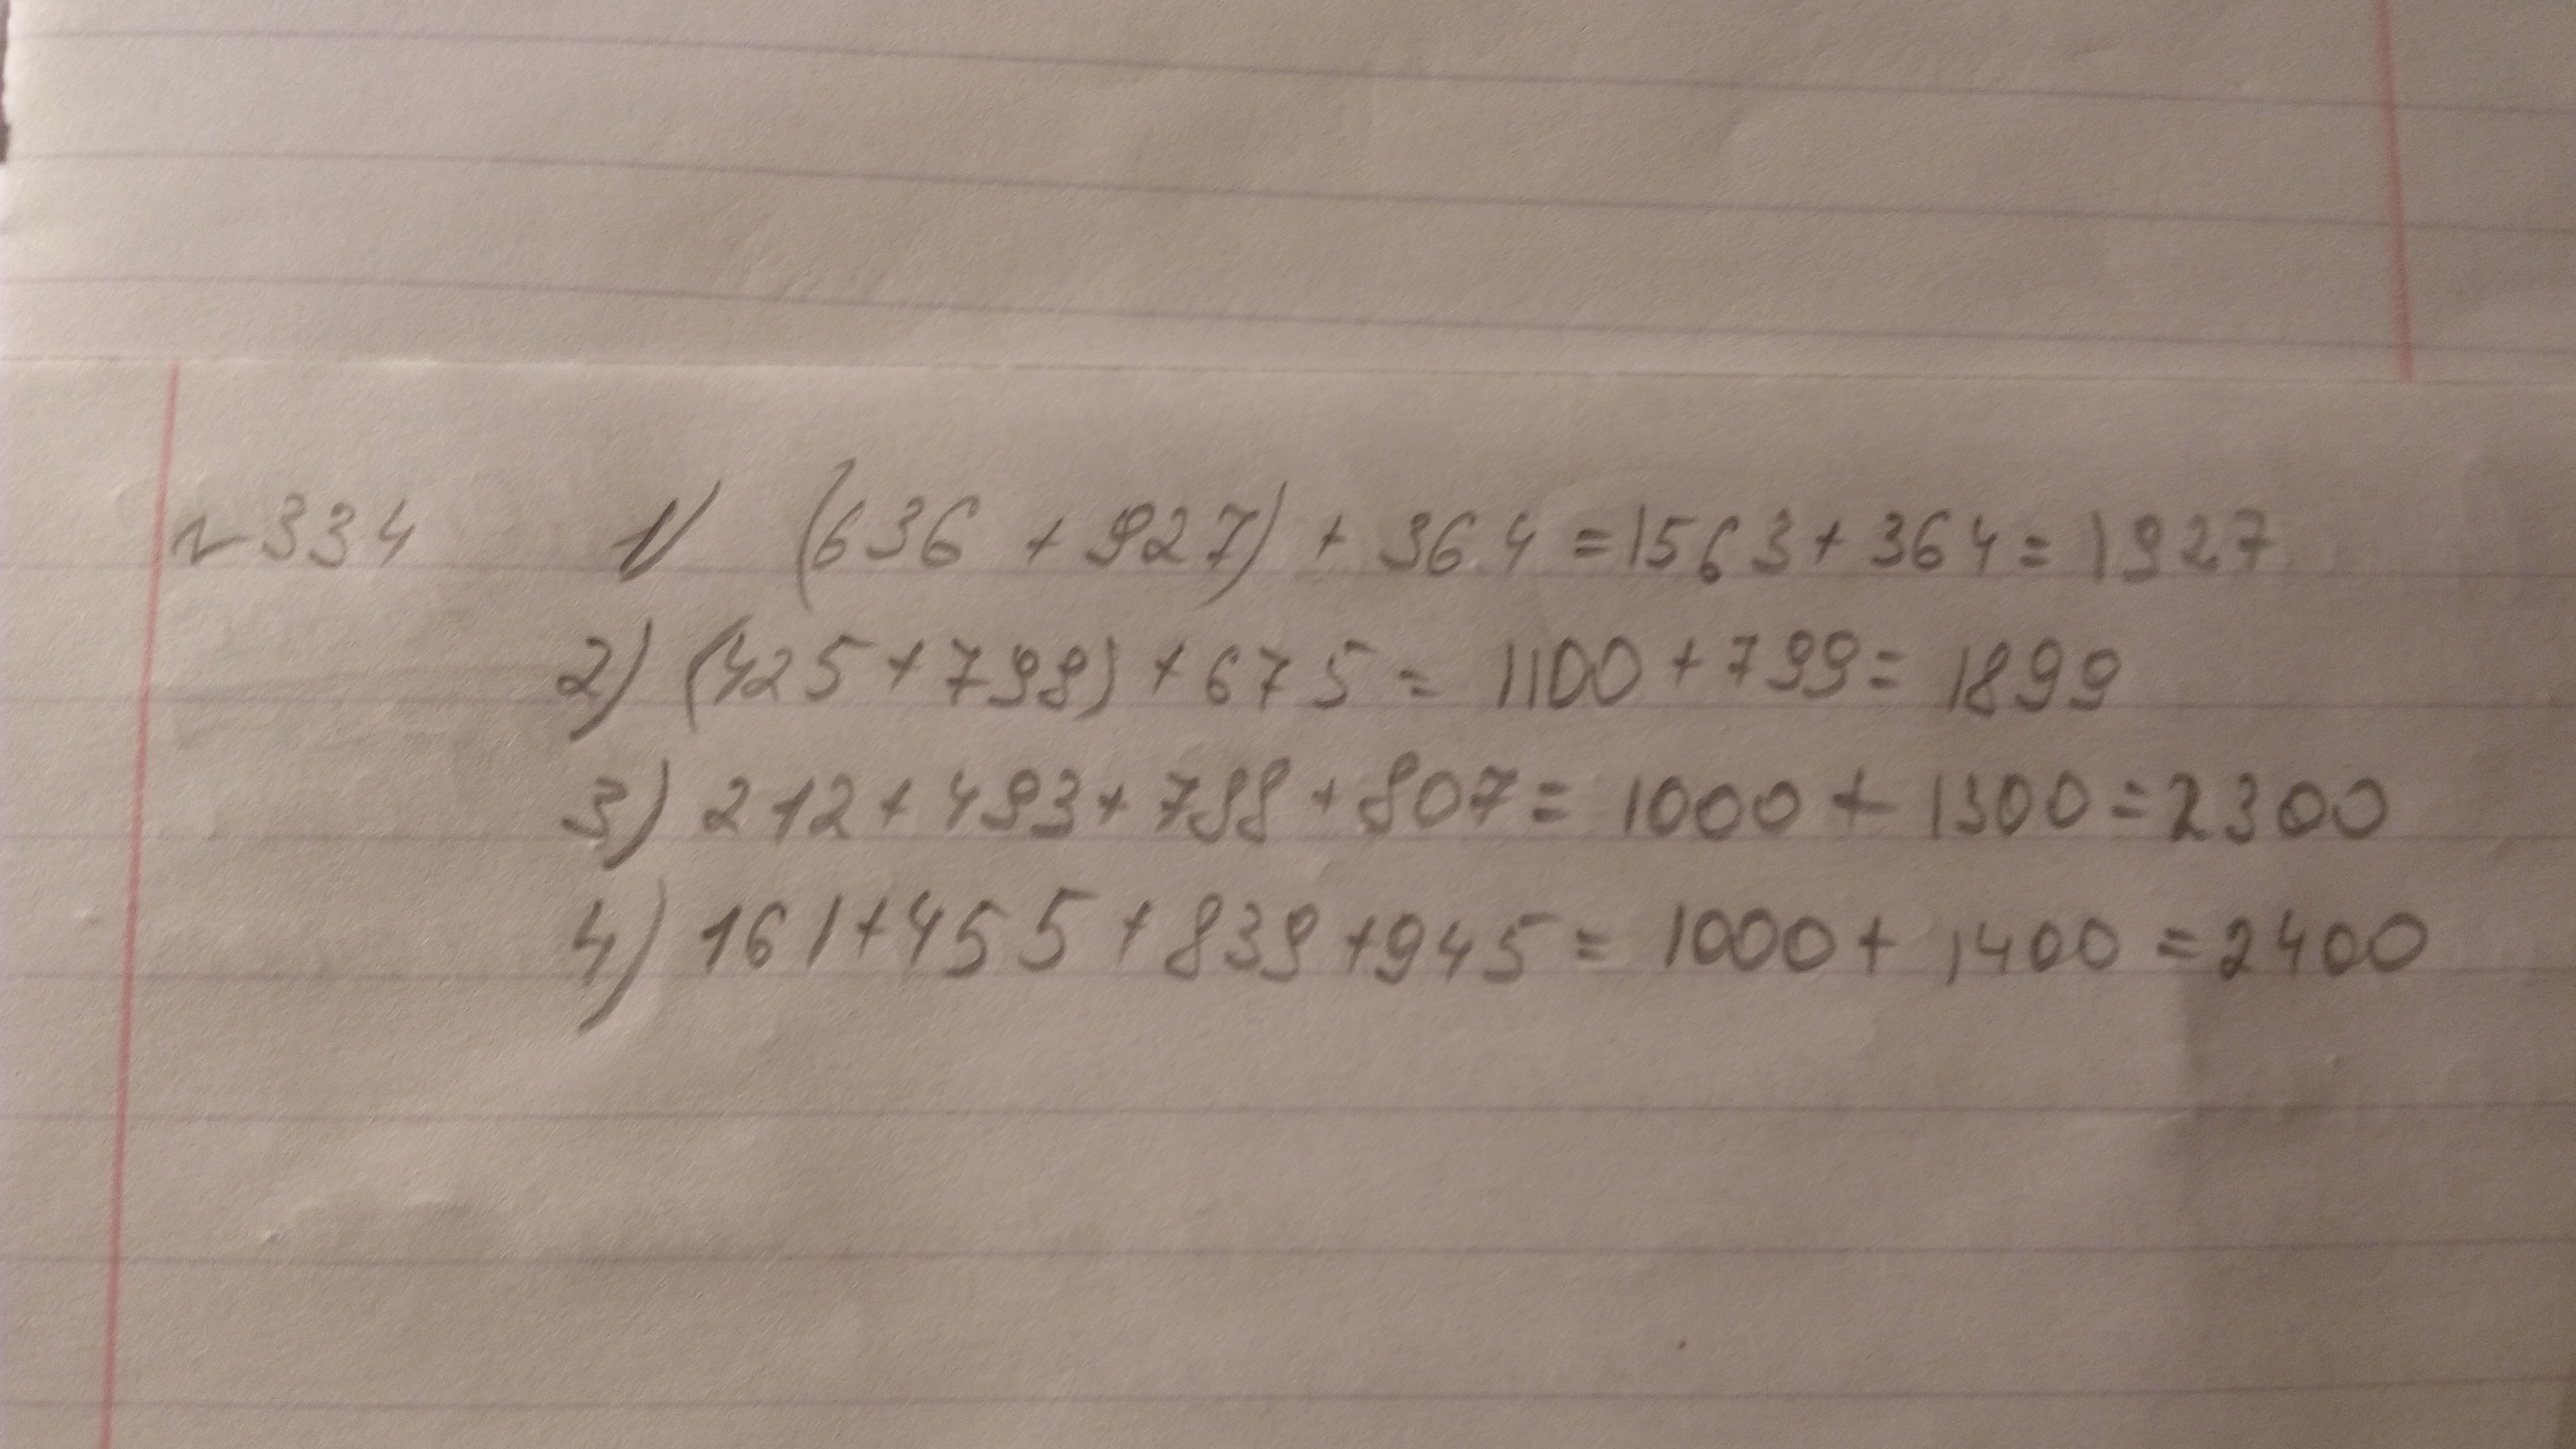 №334 1) (636 + 927) + 364 = 1563 + 364 = 1927
2) (425 + 799) + 675 = 1100 + 799 = 1899
3) 212 + 493 + 788 + 807 = 1000 + 1300 = 2300
4) 161 + 455 + 839 + 945 = 1000 + 1400 = 2400